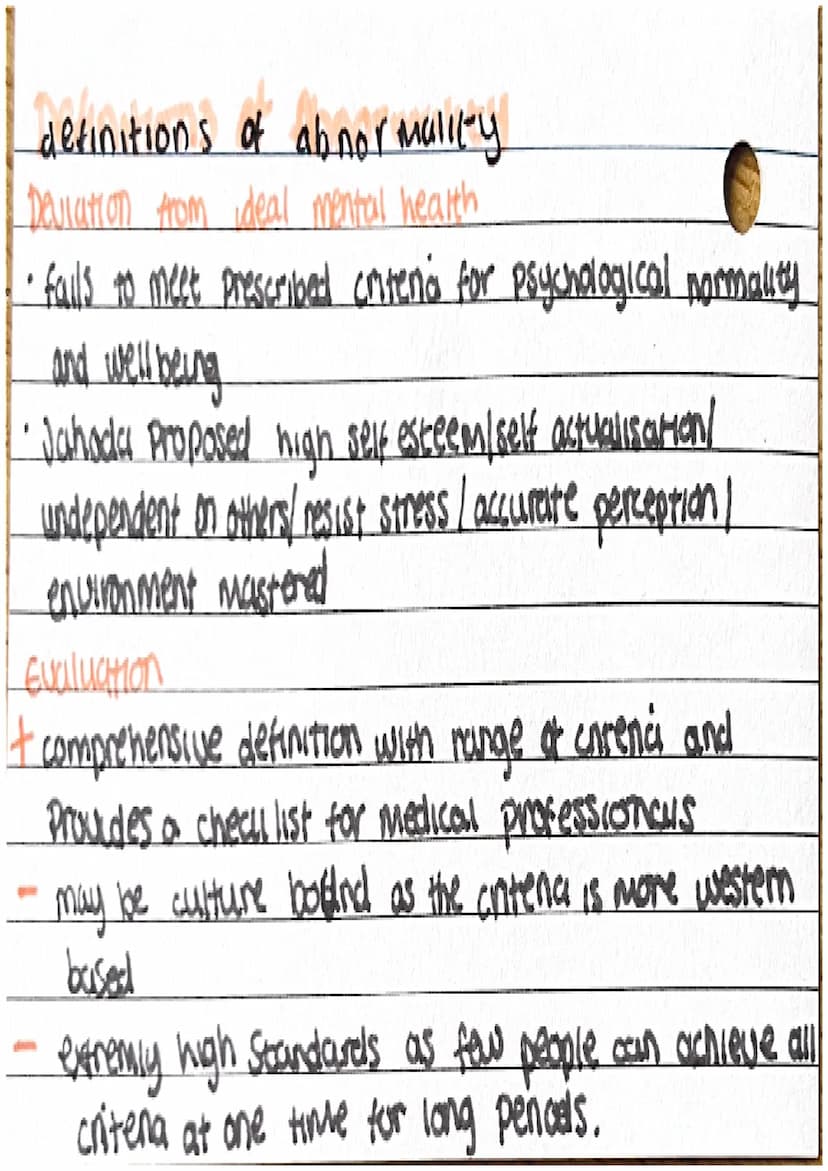 definitions of abnormality
Deviation from ideal mental health
· fails to meet prescribed criteria for psychological normality
and wellbeing
· Jahoda proposed high self esteem/self actualisation/
independent on others/ resist stress / accurate perception/
environment mastered
Evaluation
+ comprehensive definition with range of criteria and
Provides a check list for medical professionals
- may be culture bound as the criteria is more western
based
- extremly high standards as few people can achieve all
criteria at one time for long periods.